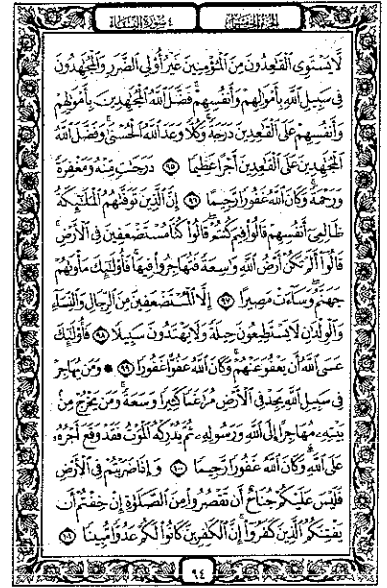 الجزء الخامس ٤ سورة النساء
لَّا يَسْتَوِى ٱلْقَٰعِدُونَ مِنَ ٱلْمُؤْمِنِينَ غَيْرُ أُو۟لِى ٱلضَّرَرِ وَٱلْمُجَٰهِدُونَ
فِى سَبِيلِ ٱللَّهِ بِأَمْوَٰلِهِمْ وَأَنفُسِهِمْ ۚ فَضَّلَ ٱللَّهُ ٱلْمُجَٰهِدِينَ بِأَمْوَٰلِهِمْ
وَأَنفُسِهِمْ عَلَى ٱلْقَٰعِدِينَ دَرَجَةً ۚ وَكُلًّا وَعَدَ ٱللَّهُ ٱلْحُسْنَىٰ ۚ وَفَضَّلَ ٱللَّهُ
ٱلْمُجَٰهِدِينَ عَلَى ٱلْقَٰعِدِينَ أَجْرًا عَظِيمًا ٩٥ دَرَجَٰتٍ مِّنْهُ وَمَغْفِرَةً
وَرَحْمَةً ۚ وَكَانَ ٱللَّهُ غَفُورًا رَّحِيمًا ٩٦ إِنَّ ٱلَّذِينَ تَوَفَّىٰهُمُ ٱلْمَلَٰٓئِكَةُ
ظَالِمِىٓ أَنفُسِهِمْ قَالُوا۟ فِيمَ كُنتُمْ ۖ قَالُوا۟ كُنَّا مُسْتَضْعَفِينَ فِى ٱلْأَرْضِ ۚ
قَالُوٓا۟ أَلَمْ تَكُنْ أَرْضُ ٱللَّهِ وَٰسِعَةً فَتُهَاجِرُوا۟ فِيهَا ۚ فَأُو۟لَٰٓئِكَ مَأْوَىٰهُمْ
جَهَنَّمُ ۖ وَسَآءَتْ مَصِيرًا ٩٧ إِلَّا ٱلْمُسْتَضْعَفِينَ مِنَ ٱلرِّجَالِ وَٱلنِّسَآءِ
وَٱلْوِلْدَٰنِ لَا يَسْتَطِيعُونَ حِيلَةً وَلَا يَهْتَدُونَ سَبِيلًا ٩٨ فَأُو۟لَٰٓئِكَ
عَسَى ٱللَّهُ أَن يَعْفُوَ عَنْهُمْ ۚ وَكَانَ ٱللَّهُ عَفُوًّا غَفُورًا ٩٩ ۞ وَمَن يُهَاجِرْ
فِى سَبِيلِ ٱللَّهِ يَجِدْ فِى ٱلْأَرْضِ مُرَٰغَمًا كَثِيرًا وَسَعَةً ۚ وَمَن يَخْرُجْ مِنۢ
بَيْتِهِۦ مُهَاجِرًا إِلَى ٱللَّهِ وَرَسُولِهِۦ ثُمَّ يُدْرِكْهُ ٱلْمَوْتُ فَقَدْ وَقَعَ أَجْرُهُۥ
عَلَى ٱللَّهِ ۗ وَكَانَ ٱللَّهُ غَفُورًا رَّحِيمًا ١٠٠ وَإِذَا ضَرَبْتُمْ فِى ٱلْأَرْضِ
فَلَيْسَ عَلَيْكُمْ جُنَاحٌ أَن تَقْصُرُوا۟ مِنَ ٱلصَّلَوٰةِ إِنْ خِفْتُمْ أَن
يَفْتِنَكُمُ ٱلَّذِينَ كَفَرُوٓا۟ ۚ إِنَّ ٱلْكَٰفِرِينَ كَانُوا۟ لَكُمْ عَدُوًّا مُّبِينًا ١٠١
٩٤